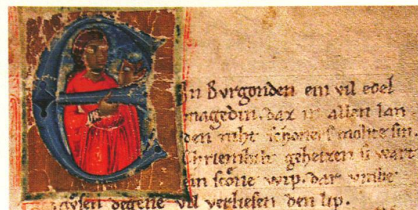 Ez
In Bvrgonden ein vil edel
magedin. daz in allen lan
den niht schoners mohte sin.
Chriemhilt geheizen si wart
ein scone wip. dar vmbe
degene vil verliesen den lip.